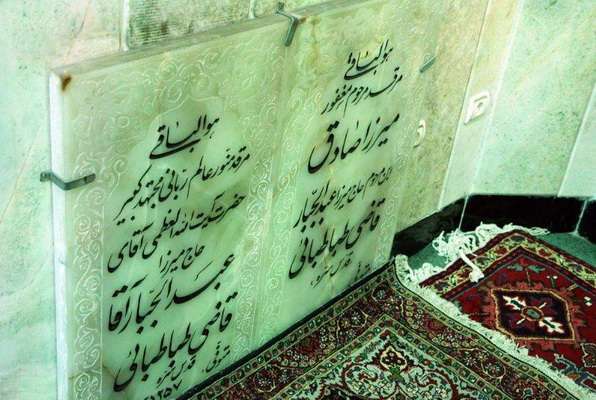 هو الباقی
مرقد مرحوم مغفور
میرزا صادق
ابن مرحوم حاج میرزا عبدالجبار
قاضی طباطبائی
قدس سره
هو الباقی
مرقد منور عالم ربانی مجتهد کبیر
حضرت آیت الله العظمی آقای
حاج میرزا
عبدالجبار آقا
قاضی طباطبائی
قدس سره